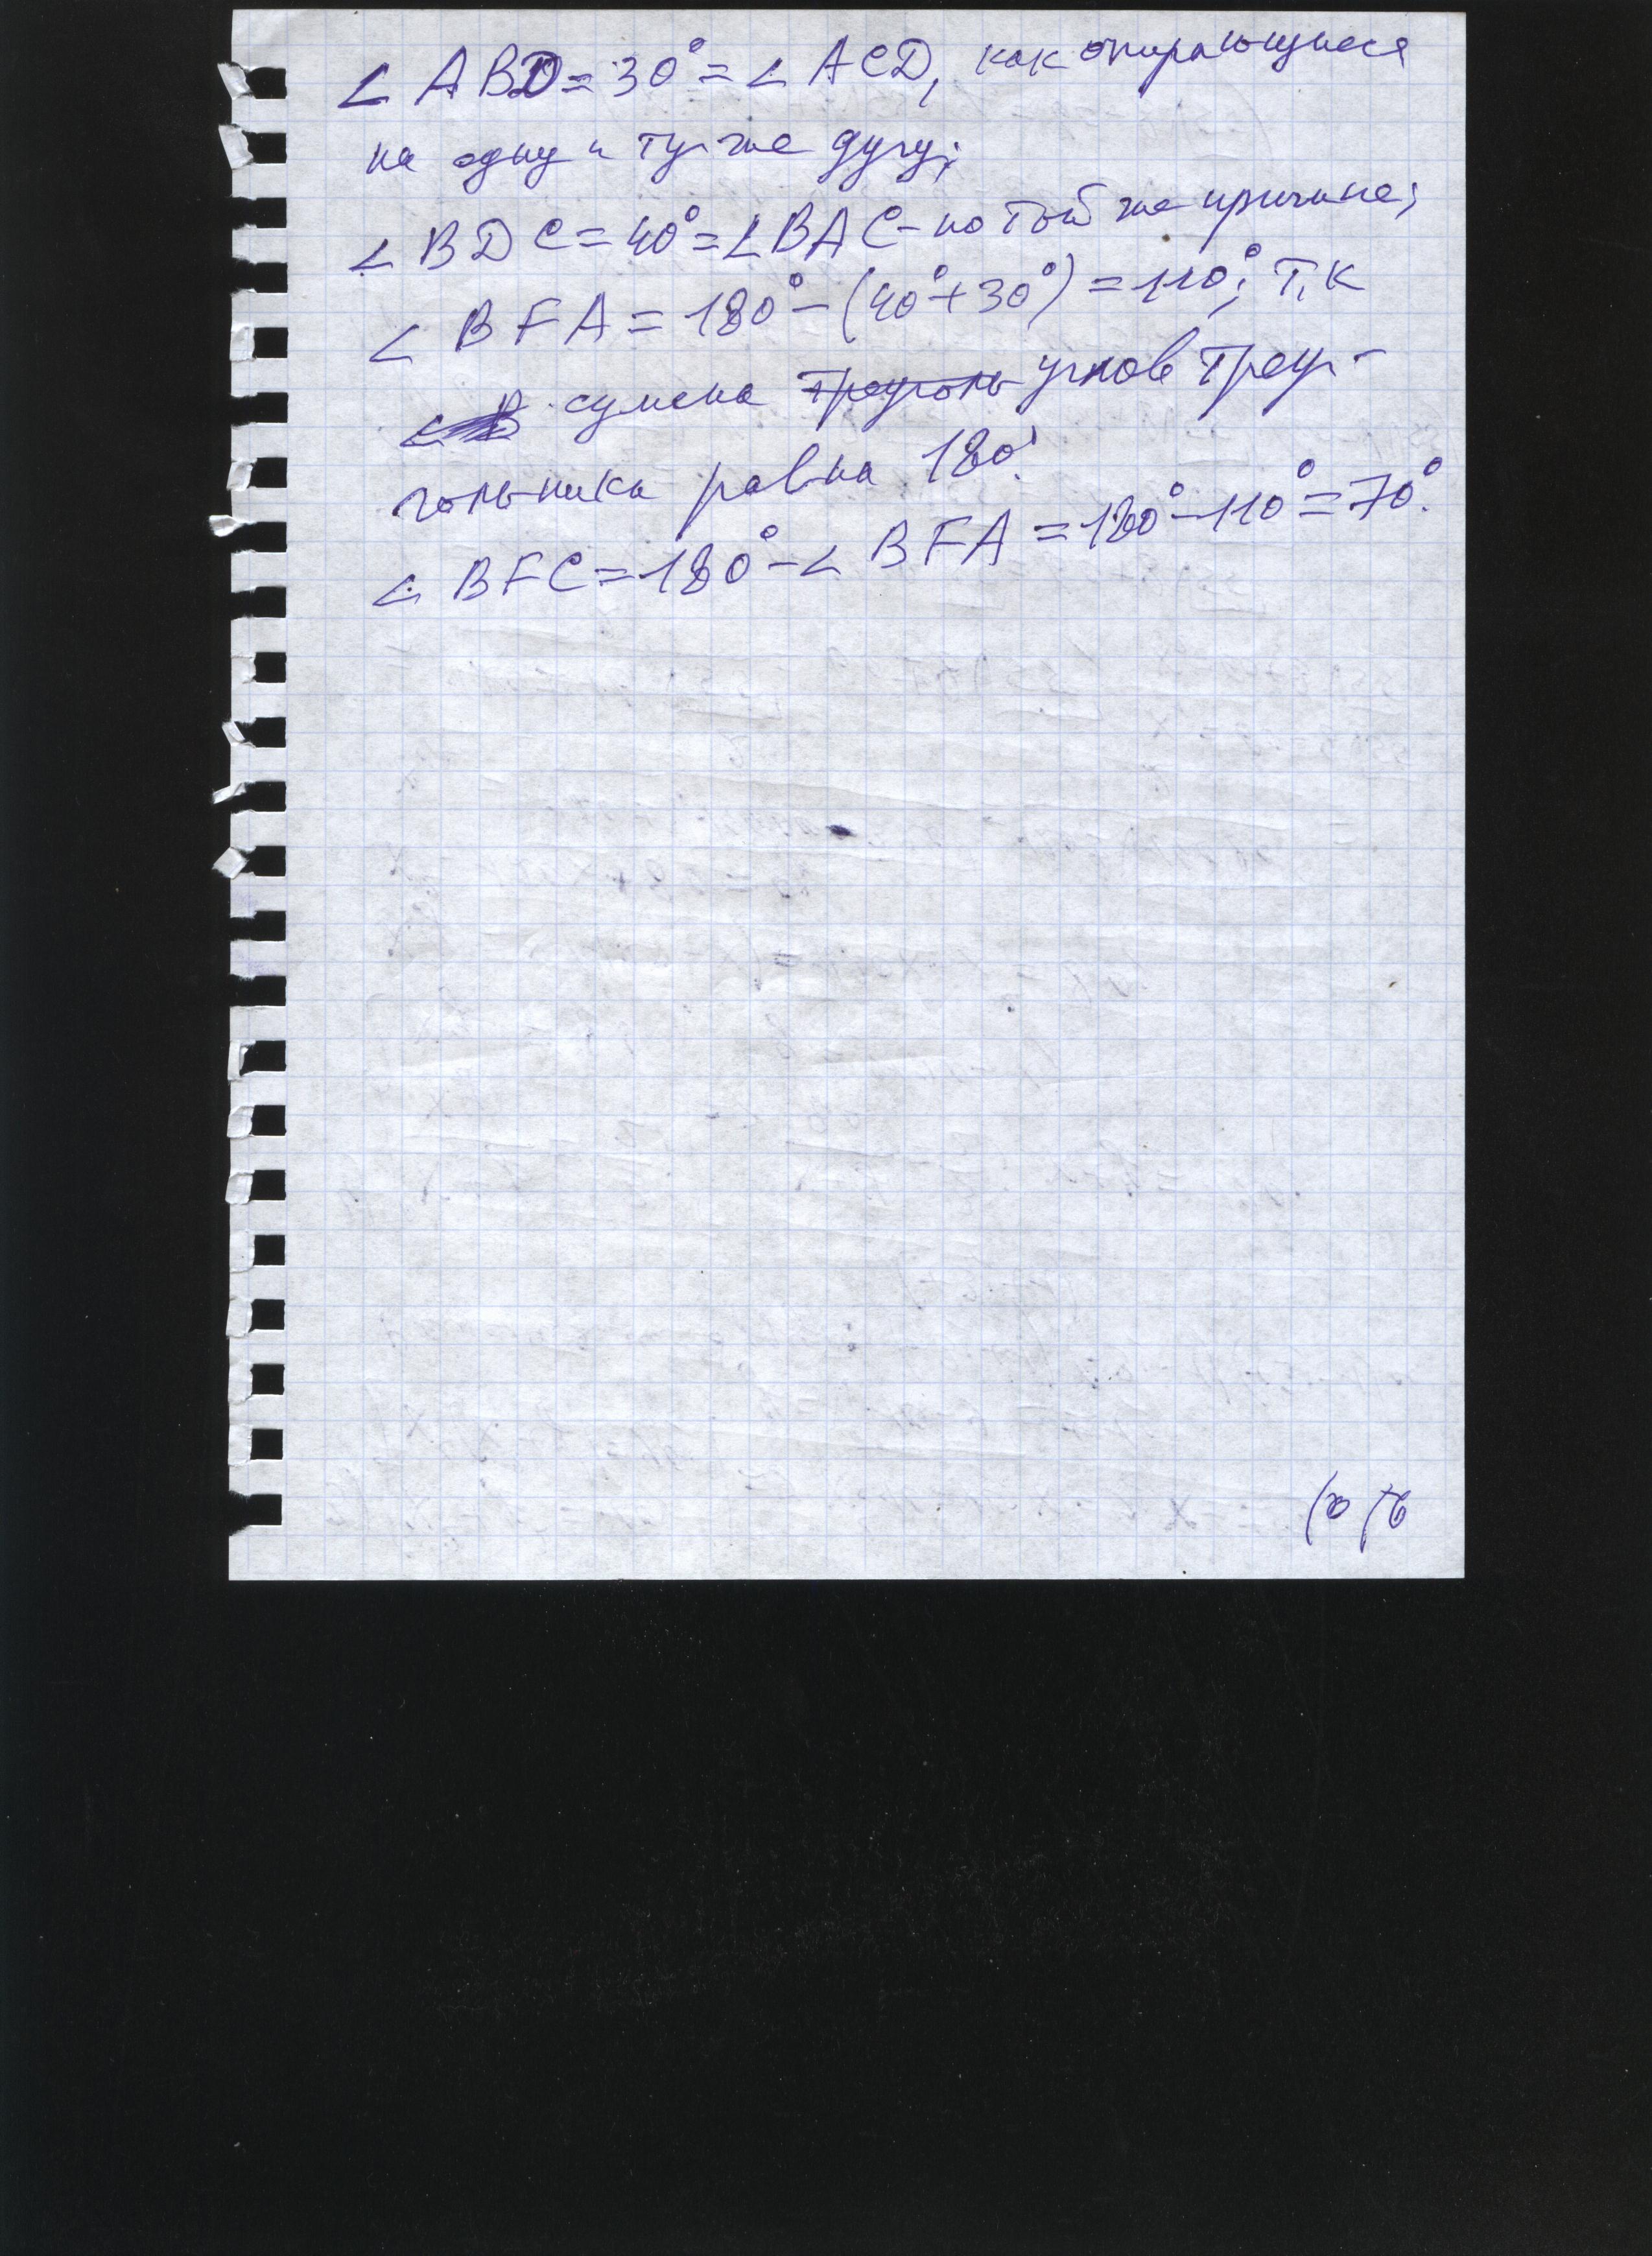 ∠ ABD = 30° = ∠ ACD, как опирающиеся
на одну и ту же дугу;
∠ BDC = 40° = ∠BAC - по той же причине;
∠ BFA = 180° - (40° + 30°) = 110°; т.к
сумма треуголь углов треу-
гольника равна 180°.
∠ BFC = 180° - ∠ BFA = 180° - 110° = 70°.